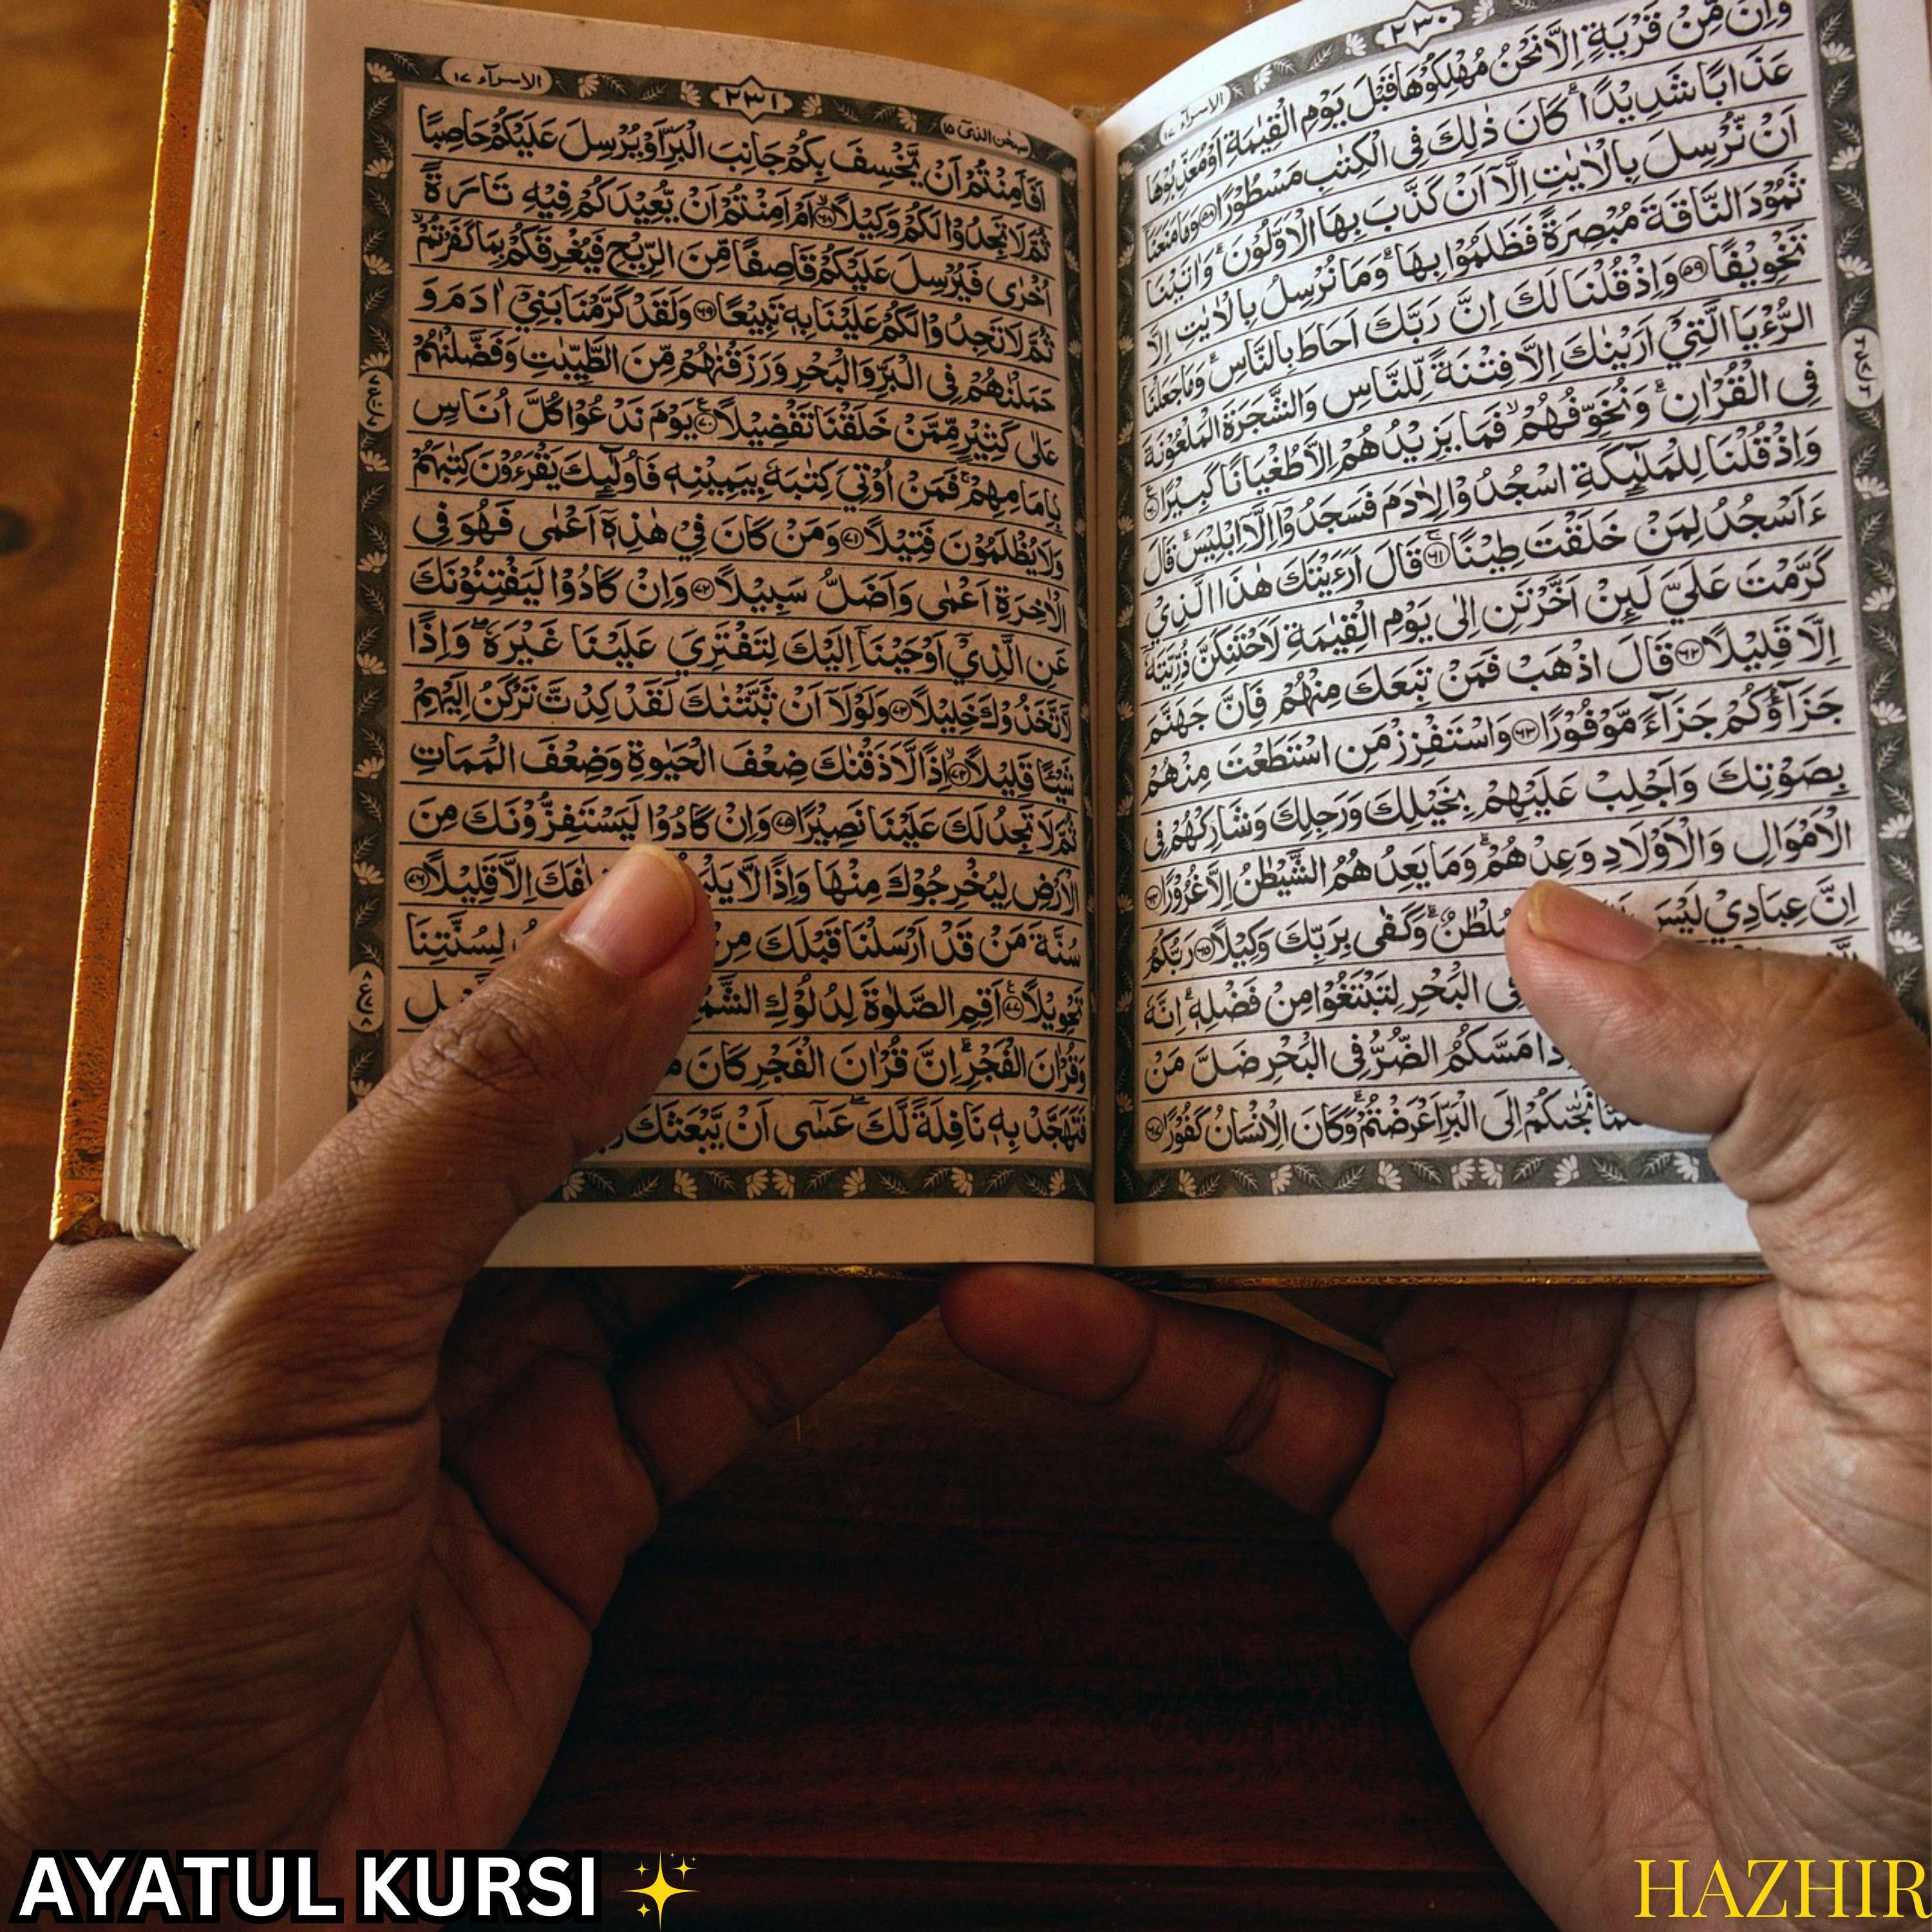 ٢٣٠
الاسرآء ١٧
وَاِنْ مِّنْ قَرْيَةٍ اِلَّا نَحْنُ مُهْلِكُوْهَا قَبْلَ يَوْمِ الْقِيٰمَةِ اَوْ مُعَذِّبُوْهَا
عَذَابًا شَدِيْدًا ۚ كَانَ ذٰلِكَ فِى الْكِتٰبِ مَسْطُوْرًا ۝٥٨ وَمَا مَنَعَنَآ
اَنْ نُّرْسِلَ بِالْاٰيٰتِ اِلَّآ اَنْ كَذَّبَ بِهَا الْاَوَّلُوْنَ ۚ وَاٰتَيْنَا
ثَمُوْدَ النَّاقَةَ مُبْصِرَةً فَظَلَمُوْا بِهَا ۚ وَمَا نُرْسِلُ بِالْاٰيٰتِ اِلَّا
تَخْوِيْفًا ۝٥٩ وَاِذْ قُلْنَا لَكَ اِنَّ رَبَّكَ اَحَاطَ بِالنَّاسِ ۚ وَمَا جَعَلْنَا
الرُّءْيَا الَّتِيْٓ اَرَيْنٰكَ اِلَّا فِتْنَةً لِّلنَّاسِ وَالشَّجَرَةَ الْمَلْعُوْنَةَ
فِى الْقُرْاٰنِ ۚ وَنُخَوِّفُهُمْ ۙ فَمَا يَزِيْدُهُمْ اِلَّا طُغْيَانًا كَبِيْرًا ۝٦٠
وَاِذْ قُلْنَا لِلْمَلٰٓئِكَةِ اسْجُدُوْا لِاٰدَمَ فَسَجَدُوْٓا اِلَّآ اِبْلِيْسَ ۚ قَالَ
ءَاَسْجُدُ لِمَنْ خَلَقْتَ طِيْنًا ۝٦١ قَالَ اَرَءَيْتَكَ هٰذَا الَّذِيْ
كَرَّمْتَ عَلَيَّ لَئِنْ اَخَّرْتَنِ اِلٰى يَوْمِ الْقِيٰمَةِ لَاَحْتَنِكَنَّ ذُرِّيَّتَهٗٓ
اِلَّا قَلِيْلًا ۝٦٢ قَالَ اذْهَبْ فَمَنْ تَبِعَكَ مِنْهُمْ فَاِنَّ جَهَنَّمَ
جَزَآؤُكُمْ جَزَآءً مَّوْفُوْرًا ۝٦٣ وَاسْتَفْزِزْ مَنِ اسْتَطَعْتَ مِنْهُمْ
بِصَوْتِكَ وَاَجْلِبْ عَلَيْهِمْ بِخَيْلِكَ وَرَجِلِكَ وَشَارِكْهُمْ فِى
الْاَمْوَالِ وَالْاَوْلَادِ وَعِدْهُمْ ۚ وَمَا يَعِدُهُمُ الشَّيْطٰنُ اِلَّا غُرُوْرًا ۝٦٤
اِنَّ عِبَادِيْ لَيْسَ سُلْطٰنٌ ۚ وَكَفٰى بِرَبِّكَ وَكِيْلًا ۝٦٥ رَبُّكُمُ
فِى الْبَحْرِ لِتَبْتَغُوْا مِنْ فَضْلِهٖ ۚ اِنَّهٗ
مَسَّكُمُ الضُّرُّ فِى الْبَحْرِ ضَلَّ مَنْ
نَجّٰىكُمْ اِلَى الْبَرِّ اَعْرَضْتُمْ ۚ وَكَانَ الْاِنْسَانُ كَفُوْرًا ۝٦٧
سبحٰن الذىٓ ١٥
٢٣١
الاسرآء ١٧
اَفَاَمِنْتُمْ اَنْ يَّخْسِفَ بِكُمْ جَانِبَ الْبَرِّ اَوْ يُرْسِلَ عَلَيْكُمْ حَاصِبًا
ثُمَّ لَا تَجِدُوْا لَكُمْ وَكِيْلًا ۝٦٨ اَمْ اَمِنْتُمْ اَنْ يُّعِيْدَكُمْ فِيْهِ تَارَةً
اُخْرٰى فَيُرْسِلَ عَلَيْكُمْ قَاصِفًا مِّنَ الرِّيْحِ فَيُغْرِقَكُمْ بِمَا كَفَرْتُمْ ۙ
ثُمَّ لَا تَجِدُوْا لَكُمْ عَلَيْنَا بِهٖ تَبِيْعًا ۝٦٩ وَلَقَدْ كَرَّمْنَا بَنِيْٓ اٰدَمَ وَ
حَمَلْنٰهُمْ فِى الْبَرِّ وَالْبَحْرِ وَرَزَقْنٰهُمْ مِّنَ الطَّيِّبٰتِ وَفَضَّلْنٰهُمْ
عَلٰى كَثِيْرٍ مِّمَّنْ خَلَقْنَا تَفْضِيْلًا ۝٧٠ يَوْمَ نَدْعُوْا كُلَّ اُنَاسٍ
بِاِمَامِهِمْ ۚ فَمَنْ اُوْتِيَ كِتٰبَهٗ بِيَمِيْنِهٖ فَاُولٰٓئِكَ يَقْرَءُوْنَ كِتٰبَهُمْ
وَلَا يُظْلَمُوْنَ فَتِيْلًا ۝٧١ وَمَنْ كَانَ فِيْ هٰذِهٖٓ اَعْمٰى فَهُوَ فِى
الْاٰخِرَةِ اَعْمٰى وَاَضَلُّ سَبِيْلًا ۝٧٢ وَاِنْ كَادُوْا لَيَفْتِنُوْنَكَ
عَنِ الَّذِيْٓ اَوْحَيْنَآ اِلَيْكَ لِتَفْتَرِيَ عَلَيْنَا غَيْرَهٗ ۖ وَاِذًا
لَّاتَّخَذُوْكَ خَلِيْلًا ۝٧٣ وَلَوْلَآ اَنْ ثَبَّتْنٰكَ لَقَدْ كِدْتَّ تَرْكَنُ اِلَيْهِمْ
شَيْـًٔا قَلِيْلًا ۝٧٤ اِذًا لَّاَذَقْنٰكَ ضِعْفَ الْحَيٰوةِ وَضِعْفَ الْمَمَاتِ
ثُمَّ لَا تَجِدُ لَكَ عَلَيْنَا نَصِيْرًا ۝٧٥ وَاِنْ كَادُوْا لَيَسْتَفِزُّوْنَكَ مِنَ
الْاَرْضِ لِيُخْرِجُوْكَ مِنْهَا وَاِذًا لَّا اِلَّا قَلِيْلًا ۝٧٦
سُنَّةَ مَنْ قَدْ اَرْسَلْنَا قَبْلَكَ مِنْ لِسُنَّتِنَا
تَحْوِيْلًا ۝٧٧ اَقِمِ الصَّلٰوةَ لِدُلُوْكِ
وَقُرْاٰنَ الْفَجْرِ ۚ اِنَّ قُرْاٰنَ الْفَجْرِ كَانَ
فَتَهَجَّدْ بِهٖ نَافِلَةً لَّكَ ۖ عَسٰٓى اَنْ يَّبْعَثَكَ
AYATUL KURSI
HAZHIR